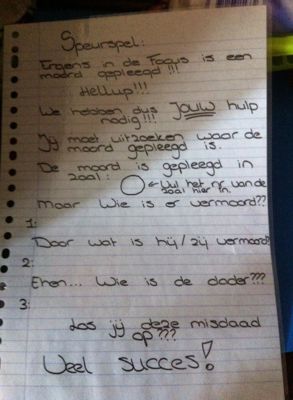 Speurspel:
Ergens in de Focus is een
moord gepleegd !!!
Hellup!!!
We hebben dus jouw hulp
nodig!!!
Jij moet uitzoeken waar de
moord gepleegd is.
De moord is gepleegd in
zaal: ← Vul het nr. van de
zaal hier in.
Maar wie is er vermoord??
1:
Door wat is hij/zij vermoord?
2:
Ehen... Wie is de dader???
3:
Los jij deze misdaad
op???
Veel succes!